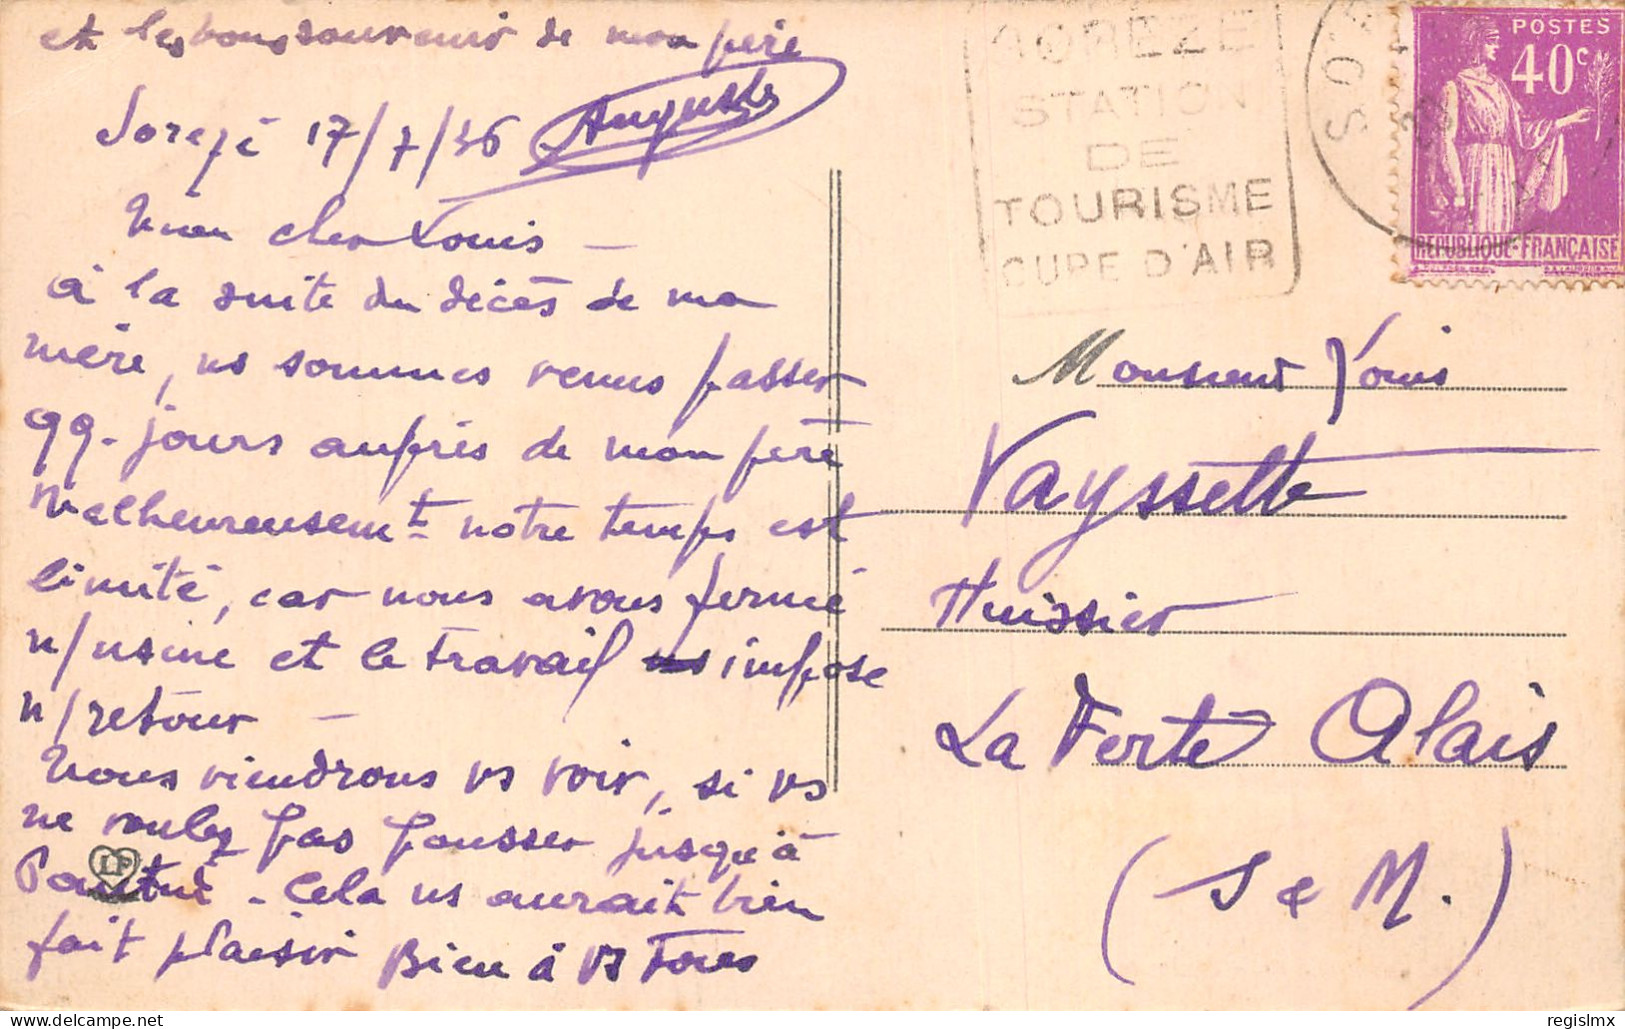 et les bons souvenir de mon père
Sorèze 17/7/36 Auguste
Mon cher Louis –
à la suite du décès de ma
mère, ns sommes venus passer
qq. jours auprès de mon père
Malheureusemt notre temps est
limité, car nous avons fermé
n/usine et le travail impose
n/retour –
Nous viendrons vs voir, si vs
ne voulez pas pousser jusqu'à
LP
. Cela ns aurait bien
fait plaisir Bien à Vs Tous
SOREZE
STATION
DE
TOURISME
CURE D'AIR
POSTES
40c
REPUBLIQUE-FRANÇAISE
Monsieur Louis
Vayssette
Huissier
La Ferté Alais
(S & M.)
delcampe.net
regislmx